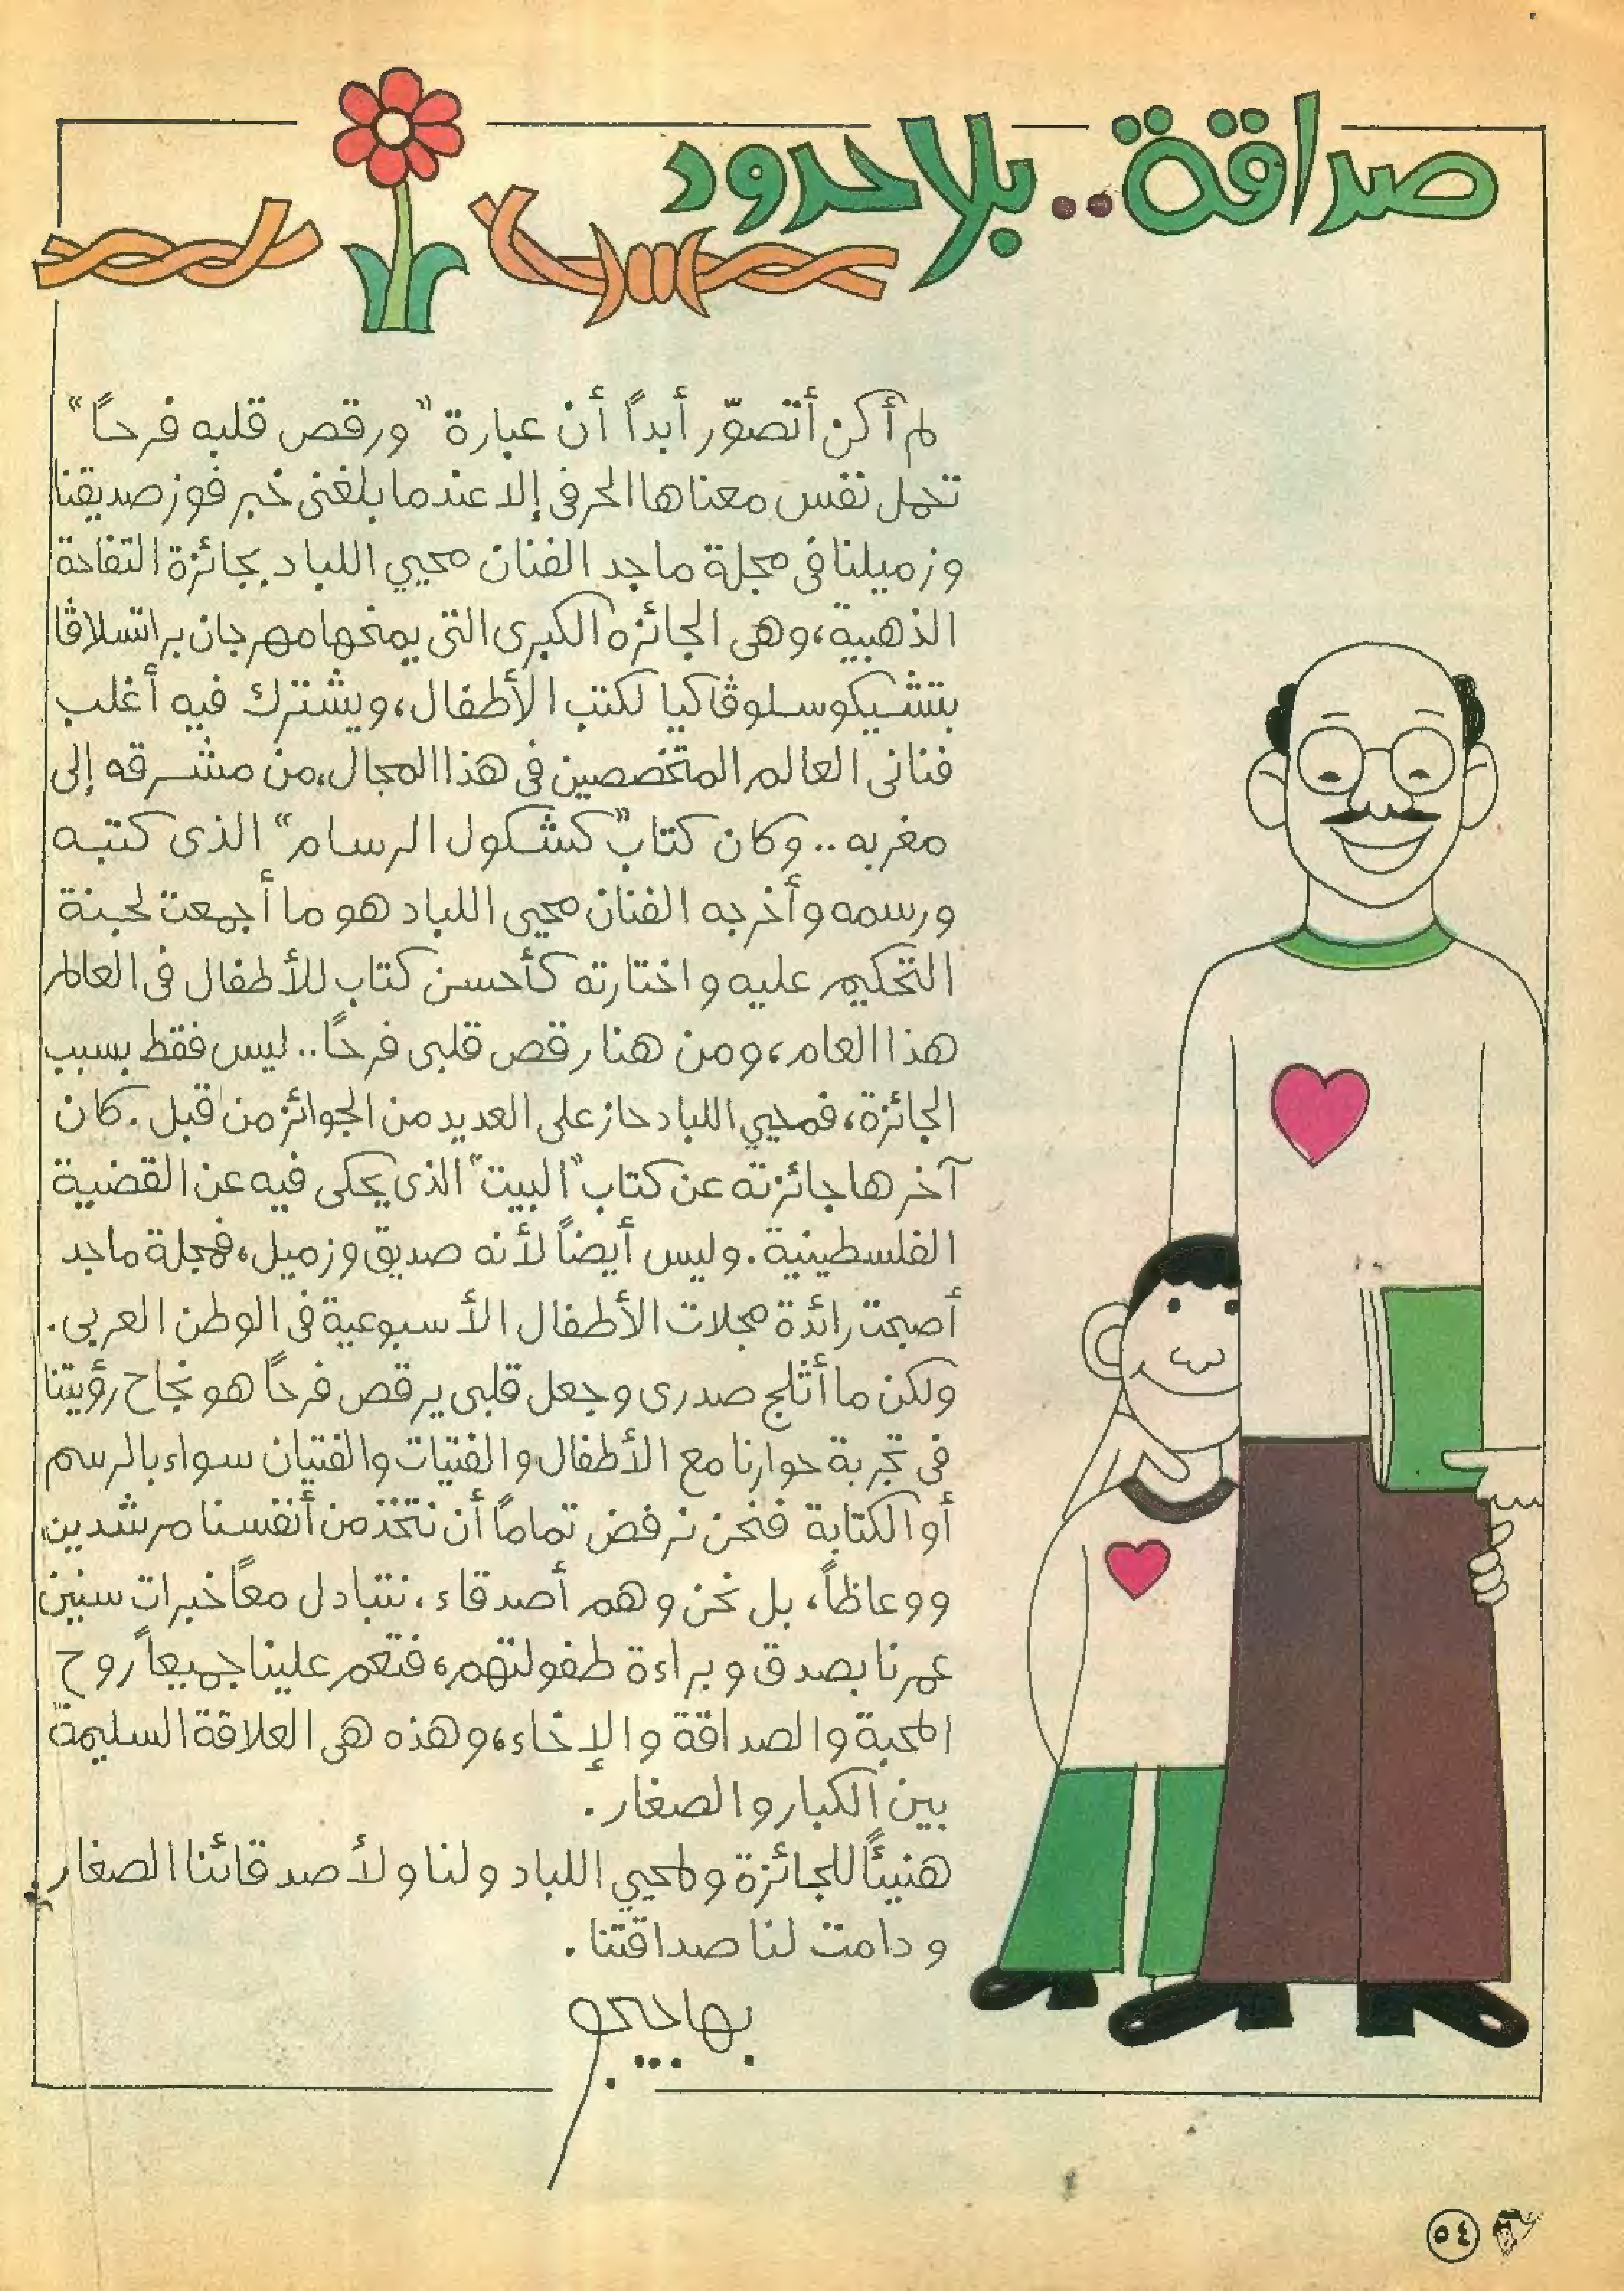 صداقة.. بلا حدود
لم أكن أتصوّر أبداً أن عبارة "ورقص قلبه فرحاً"
تحمل نفس معناها الحرفى إلا عندما بلغنى خبر فوز صديقنا
وزميلنا فى مجلة ماجد الفنان محيي اللباد بجائزة التفاحة
الذهبية، وهى الجائزه الكبرى التى يمنحها مهرجان براتسلاڤا
بتشيكوسلوڤاكيا لكتب الأطفال، ويشترك فيه أغلب
فنانى العالم المتخصصين فى هذا المجال، من مشرقه إلى
مغربه .. وكان كتاب "كشكول الرسام" الذى كتبه
ورسمه وأخرجه الفنان محيى اللباد هو ما أجمعت لجنة
التحكيم عليه واختارته كأحسن كتاب للأطفال فى العالم
هذا العام، ومن هنا رقص قلبى فرحاً.. ليس فقط بسبب
الجائزة، فمحيي اللباد حاز على العديد من الجوائز من قبل. كان
آخرها جائزته عن كتاب "البيت" الذى يحكى فيه عن القضية
الفلسطينية. وليس أيضاً لأنه صديق وزميل، فمجلة ماجد
أصبحت رائدة مجلات الأطفال الأسبوعية فى الوطن العربى.
ولكن ما أثلج صدرى وجعل قلبى يرقص فرحاً هو نجاح رؤيتنا
فى تجربة حوارنا مع الأطفال والفتيات والفتيان سواء بالرسم
أو الكتابة فنحن نرفض تماماً أن نتخذ من أنفسنا مرشدين
ووعاظاً، بل نحن وهم أصدقاء، نتبادل معاً خبرات سنين
عمرنا بصدق وبراءة طفولتهم، فتعم علينا جميعاً روح
المحبة والصداقة والإخاء، وهذه هى العلاقة السليمة
بين الكبار والصغار.
هنيئاً للجائزة ولمحيي اللباد ولنا ولأصدقائنا الصغار.
ودامت لنا صداقتنا.
٥٤